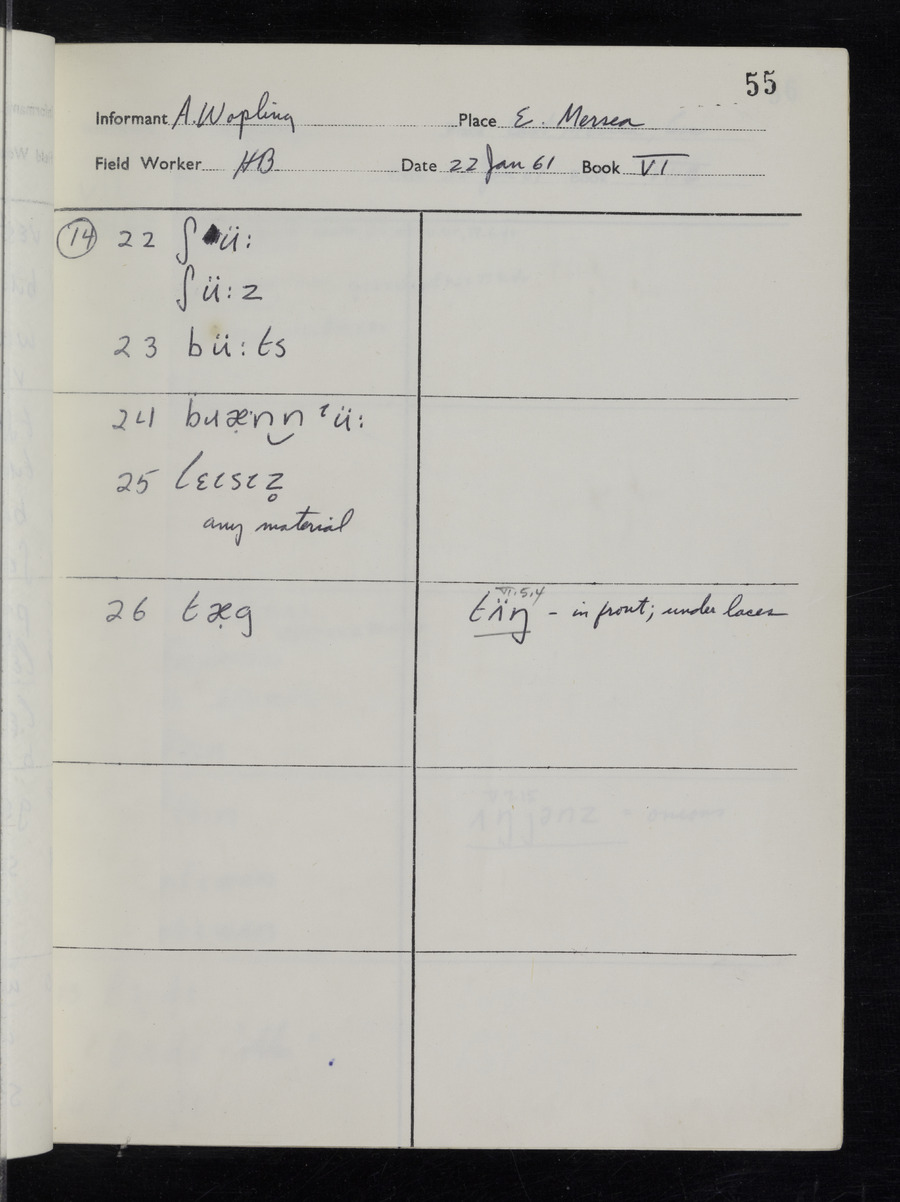 55
Informant A. Wopling Place E. Mersea
Field Worker HB Date 22 Jan 61 Book VI
14 22 ʃü:
ʃü:z
23 bü:ts
24
25
any material
26 tæ̣g VI.5.4
tïŋ – in front; under laces